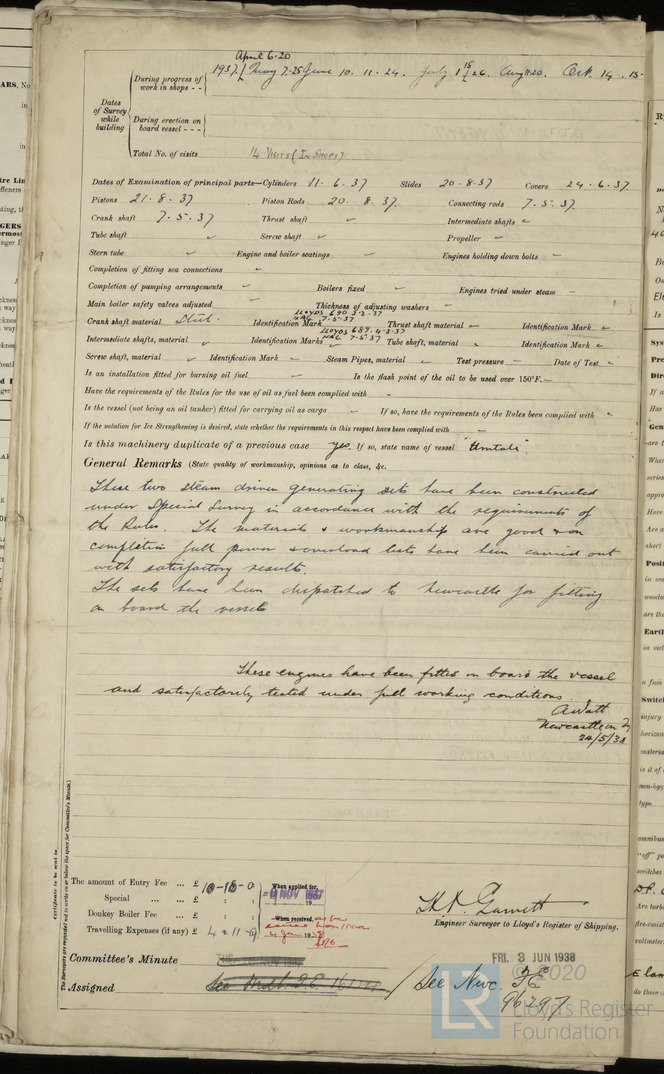 April 6.20
1937
During progress of work in shops - -
June 10. 11. 24. July 1 15 26. Aug 11.20. Oct. 14. 15
Dates of Survey while building
During erection on board vessel - - -
Total No. of visits 14 Visits (In Shops)
Dates of Examination of principal parts—Cylinders 11. 6. 37 Slides 20. 8. 37 Covers 24. 6. 37
Pistons 21. 8. 37 Piston Rods 20. 8. 37. Connecting rods 7. 5. 37.
Crank shaft 7. 5. 37 Thrust shaft Intermediate shafts
Tube shaft Screw shaft Propeller
Stern tube Engine and boiler seatings Engines holding down bolts
Completion of fitting sea connections
Completion of pumping arrangements Boilers fixed Engines tried under steam
Main boiler safety valves adjusted Thickness of adjusting washers
Crank shaft material Steel. Identification Mark LLOYDS 7.5.37 Thrust shaft material Identification Mark
Intermediate shafts, material Identification Marks LLOYDS 689. 7.5.37 Tube shaft, material Identification Mark
Screw shaft, material Identification Mark Steam Pipes, material Test pressure Date of Test
Is an installation fitted for burning oil fuel Is the flash point of the oil to be used over 150°F.
Have the requirements of the Rules for the use of oil as fuel been complied with
Is the vessel (not being an oil tanker) fitted for carrying oil as cargo If so, have the requirements of the Rules been complied with
If the notation for Ice Strengthening is desired, state whether the requirements in this respect have been complied with
Is this machinery duplicate of a previous case yes. If so, state name of vessel "Umtali"
General Remarks (State quality of workmanship, opinions as to class, &c.
These two steam driven generating sets have been constructed
under Special Survey in accordance with the requirements of
the Rules. The materials & workmanship are good & on
completion full power & overload tests have been carried out
with satisfactory results.
The sets have been dispatched to Newcastle for fitting
on board the vessels
These engines have been fitted on board the vessel
and satisfactorily tested under full working conditions.
A Watt
Newcastle on T
24/5/38
Certificate to be sent to
The Surveyors are requested not to write on or below the space for Committee's Minute.
The amount of Entry Fee ... £ 10-16-0 When applied for,
Special ... ... £ : : NOV 1937
Donkey Boiler Fee ... £ : : When received,
Travelling Expenses (if any) £ 4 : 11 : 9
Garnett
Engineer Surveyor to Lloyd's Register of Shipping.
Committee's Minute
FRI. 3 JUN 1938
Assigned
See Nwc. F.E.
96297
LR
© 2020
Lloyd's Register
Foundation